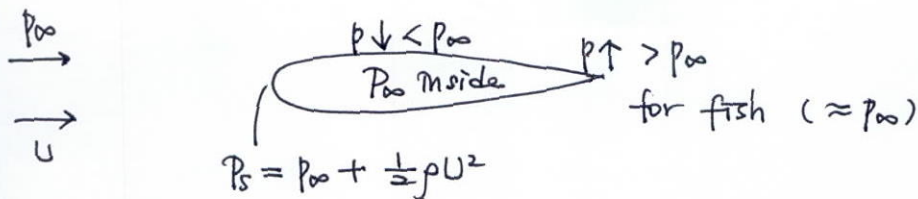 p∞
p↓ < p∞
p↑ > p∞
P∞ inside
for fish (≈ p∞)
U
Ps = p∞ + ½ρU²